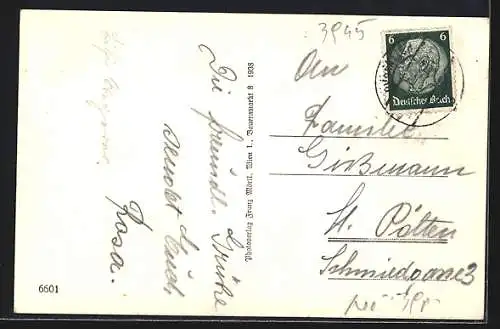 3945
6 6
Deutsches Reich
An
Familie
Gißmann
St. Pölten
Schmiedgasse 3
Die freundl. Grüße
sendet Euch
Rosa.
Photoverlag Franz Mörtl, Wien 1., Bauernmarkt 8 1938
6601